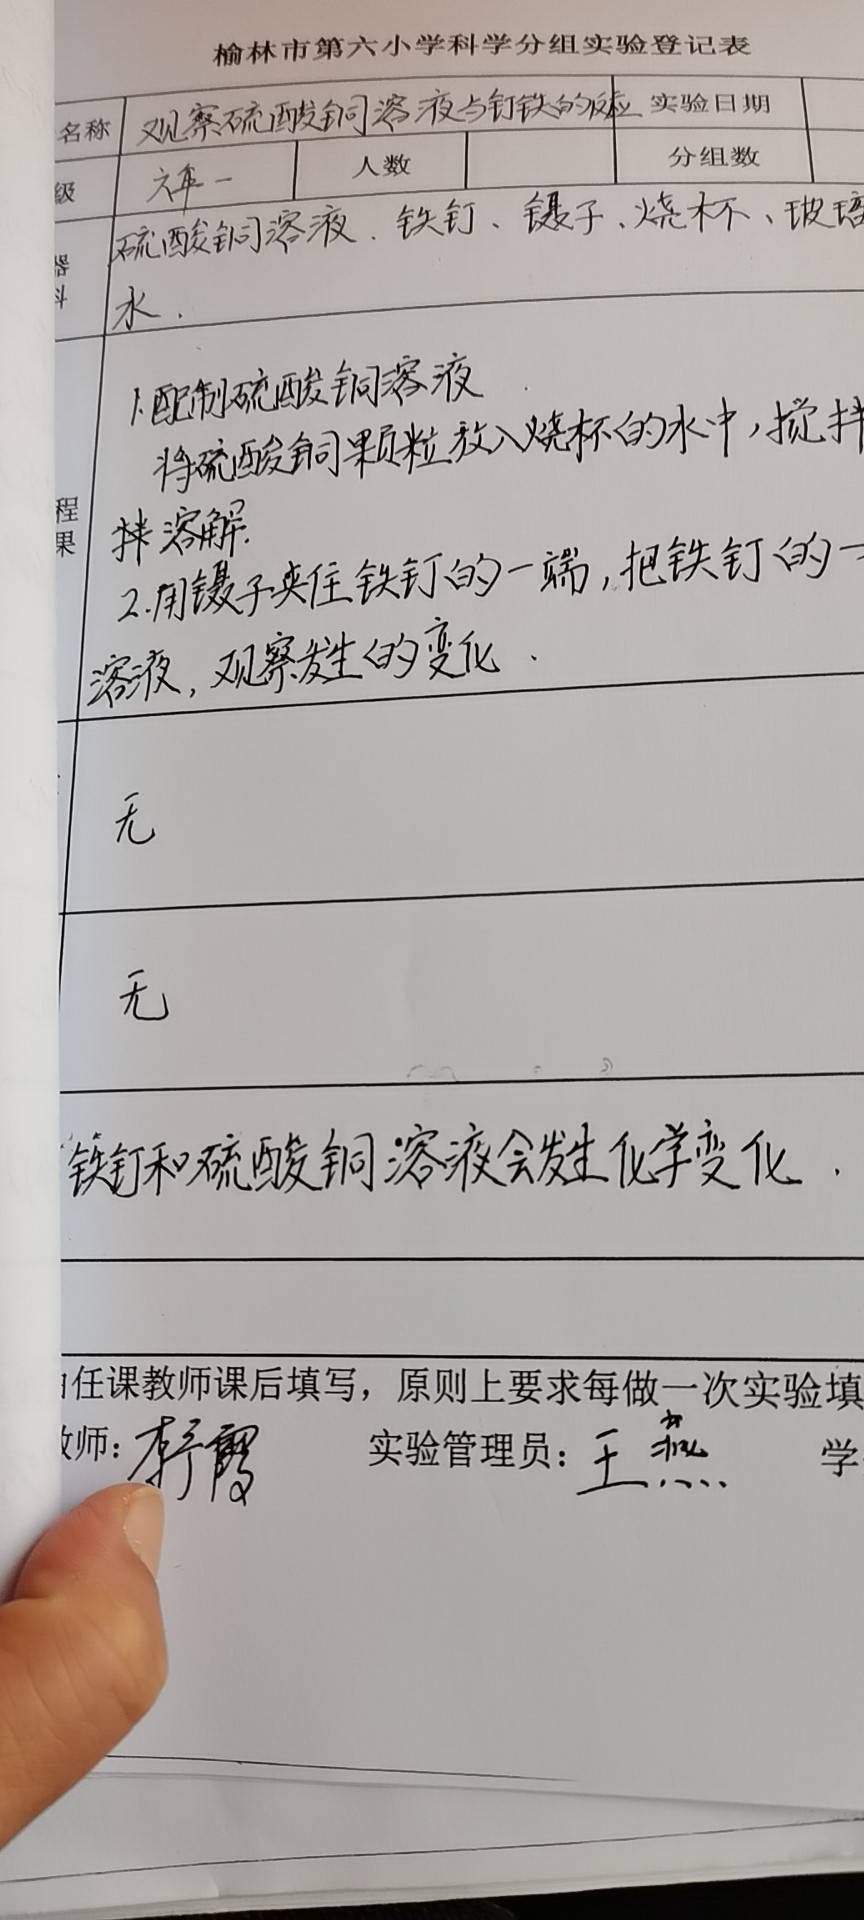 榆林市第六小学科学分组实验登记表
名称 观察硫酸铜溶液与钉铁的反应 实验日期
级 六年一 人数 分组数
器 硫酸铜溶液、铁钉、镊子、烧杯、玻璃
水.
1.配制硫酸铜溶液
将硫酸铜颗粒放入烧杯的水中,搅拌
程
果 拌溶解.
2.用镊子夹住铁钉的一端,把铁钉的一
溶液,观察发生的变化.
无
无
铁钉和硫酸铜溶液会发生化学变化.
任课教师课后填写,原则上要求每做一次实验填
教师: 实验管理员:王燕 学